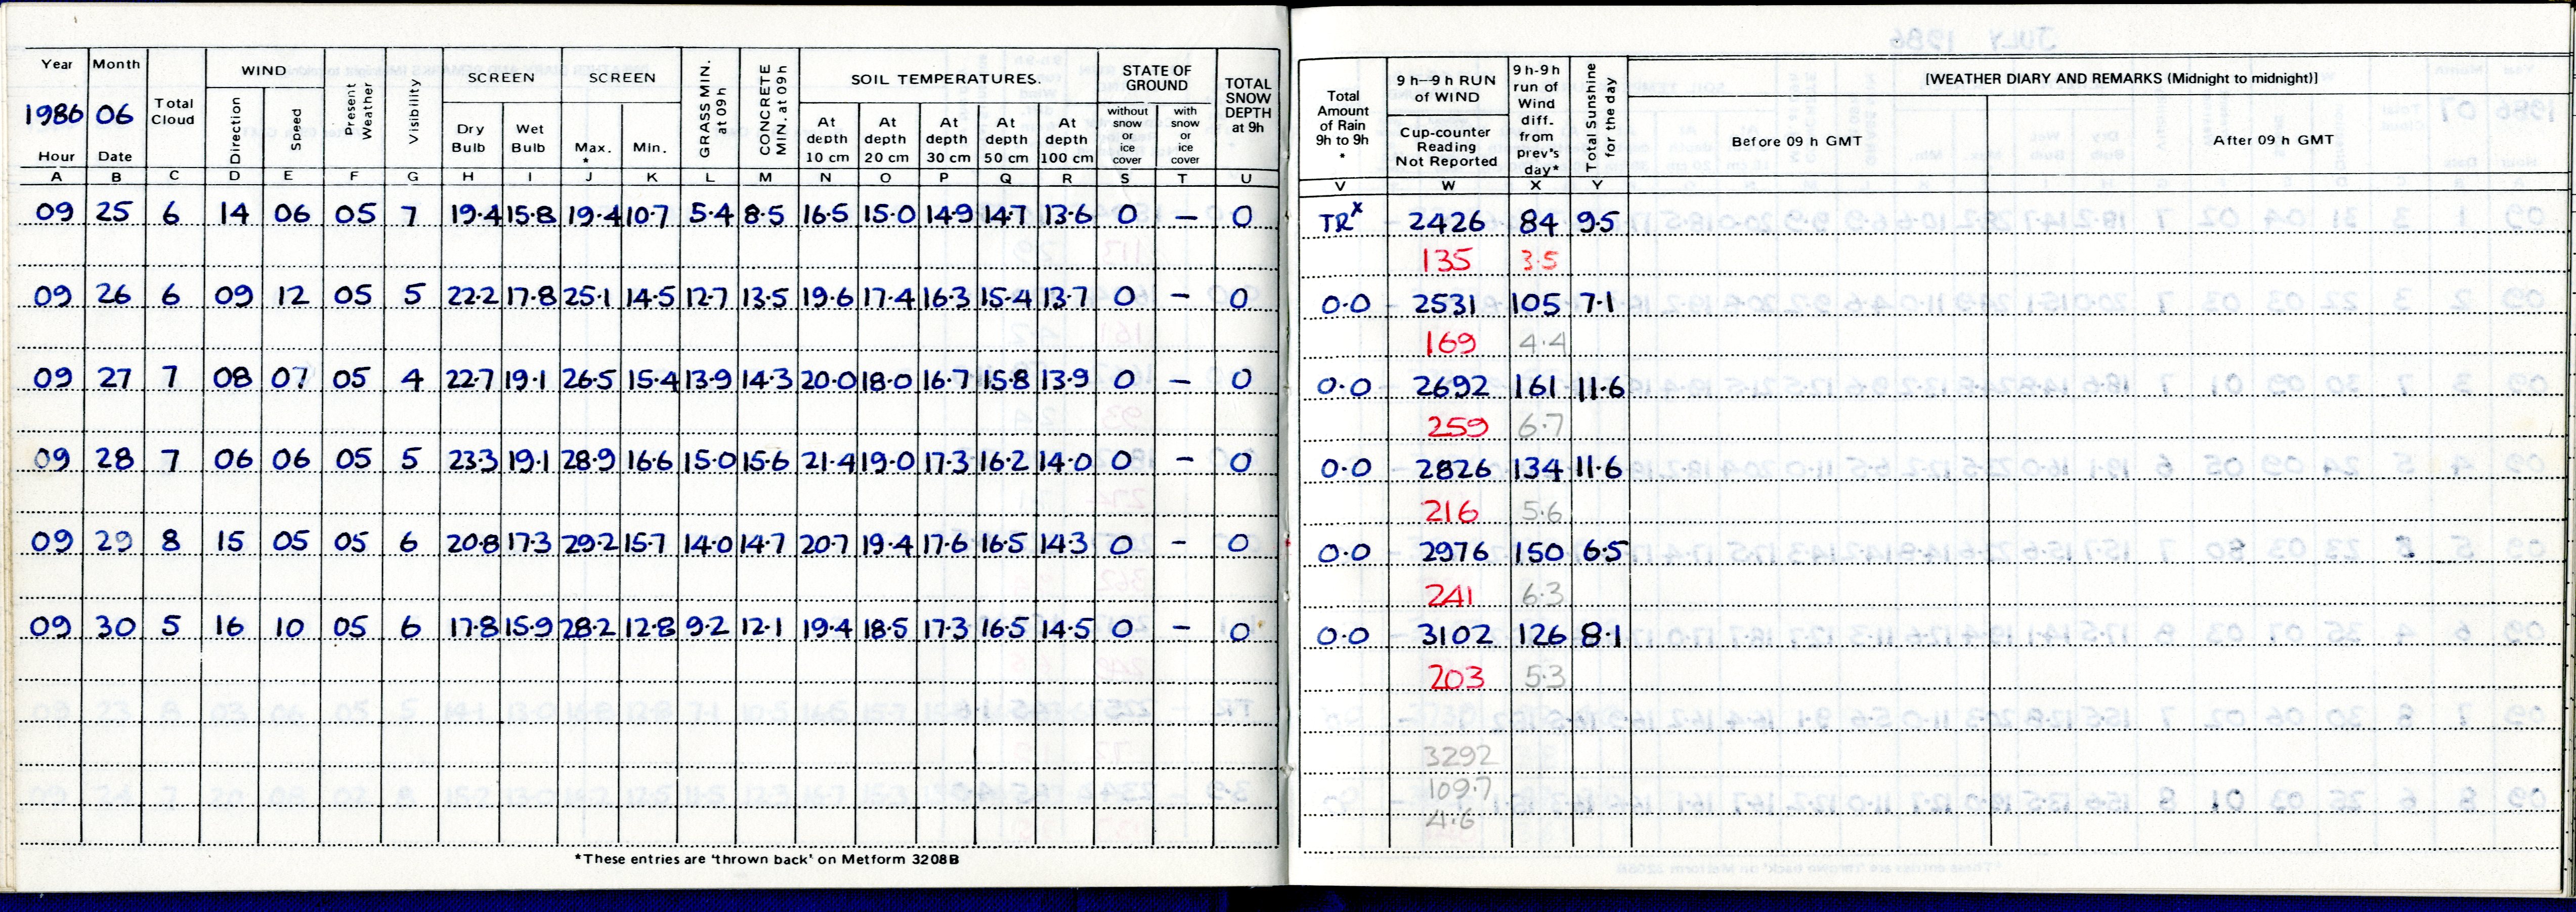 Year Month Total Cloud WIND Present Weather Visibility SCREEN SCREEN GRASS MIN. at 09h CONCRETE MIN. at 09h SOIL TEMPERATURES. STATE OF GROUND TOTAL SNOW DEPTH at 9h
1986 06 Direction Speed
Hour Date Dry Bulb Wet Bulb Max. * Min. At depth 10 cm At depth 20 cm At depth 30 cm At depth 50 cm At depth 100 cm without snow or ice cover with snow or ice cover
A B C D E F G H I J K L M N O P Q R S T U
09 25 6 14 06 05 7 19.4 15.8 19.4 10.7 5.4 8.5 16.5 15.0 14.9 14.7 13.6 0 – 0
09 26 6 09 12 05 5 22.2 17.8 25.1 14.5 12.7 13.5 19.6 17.4 16.3 15.4 13.7 0 – 0
09 27 7 08 07 05 4 22.7 19.1 26.5 15.4 13.9 14.3 20.0 18.0 16.7 15.8 13.9 0 – 0
09 28 7 06 06 05 5 23.3 19.1 28.9 16.6 15.0 15.6 21.4 19.0 17.3 16.2 14.0 0 – 0
09 29 8 15 05 05 6 20.8 17.3 29.2 15.7 14.0 14.7 20.7 19.4 17.6 16.5 14.3 0 – 0
09 30 5 16 10 05 6 17.8 15.9 28.2 12.8 9.2 12.1 19.4 18.5 17.3 16.5 14.5 0 – 0
*These entries are 'thrown back' on Metform 3208B
Total Amount of Rain 9h to 9h * 9 h—9 h RUN of WIND 9 h-9h run of Wind diff. from prev's day* Total Sunshine for the day [WEATHER DIARY AND REMARKS (Midnight to midnight)]
Cup-counter Reading Not Reported Before 09 h GMT After 09 h GMT
V W X Y
TR x 2426 84 9.5
135 3.5
0.0 2531 105 7.1
169 4.4
0.0 2692 161 11.6
259 6.7
0.0 2826 134 11.6
216 5.6
0.0 2976 150 6.5
241 6.3
0.0 3102 126 8.1
203 5.3
3292
109.7
4.6